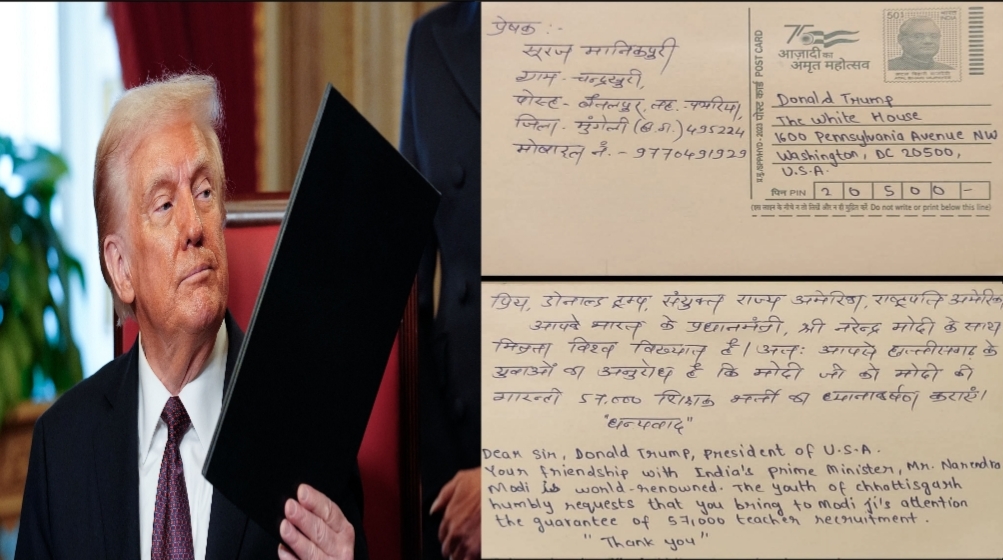 प्रेषक :-
सूरज मानिकपुरी
ग्राम - चन्द्रखुरी,
पोस्ट - बैतलपुर, तह. पथरिया,
जिला - मुंगेली (छ.ग.) 495224
मोबाइल नं. - 9770491929
75
आज़ादी का
अमृत महोत्सव
501
INDIA
पोस्ट कार्ड POST CARD
Donald Trump
The White House
1600 Pennsylvania Avenue NW
Washington, DC 20500,
U.S.A.
पिन PIN 2 0 5 0 0 -
(इस लाइन के नीचे न तो लिखें और न ही मुद्रित करें Do not write or print below this line)
प्रिय, डोनाल्ड ट्रम्प, संयुक्त राज्य अमेरिका, राष्ट्रपति अमेरिका
आपके भारत के प्रधानमंत्री, श्री नरेन्द्र मोदी के साथ
मित्रता विश्व विख्यात है। अतः आपसे छत्तीसगढ़ के
युवाओं का अनुरोध है कि मोदी जी को मोदी की
गारन्टी 57,000 शिक्षक भर्ती का ध्यानाकर्षण कराएं।
"धन्यवाद"
Dear Sir, Donald Trump, president of U.S.A.
Your friendship with India's prime Minister, Mr. Narendra
Modi is world-renowned. The youth of chhattisgarh
humbly requests that you bring to Modi ji's attention
the guarantee of 57,000 teacher recruitment.
"Thank you"